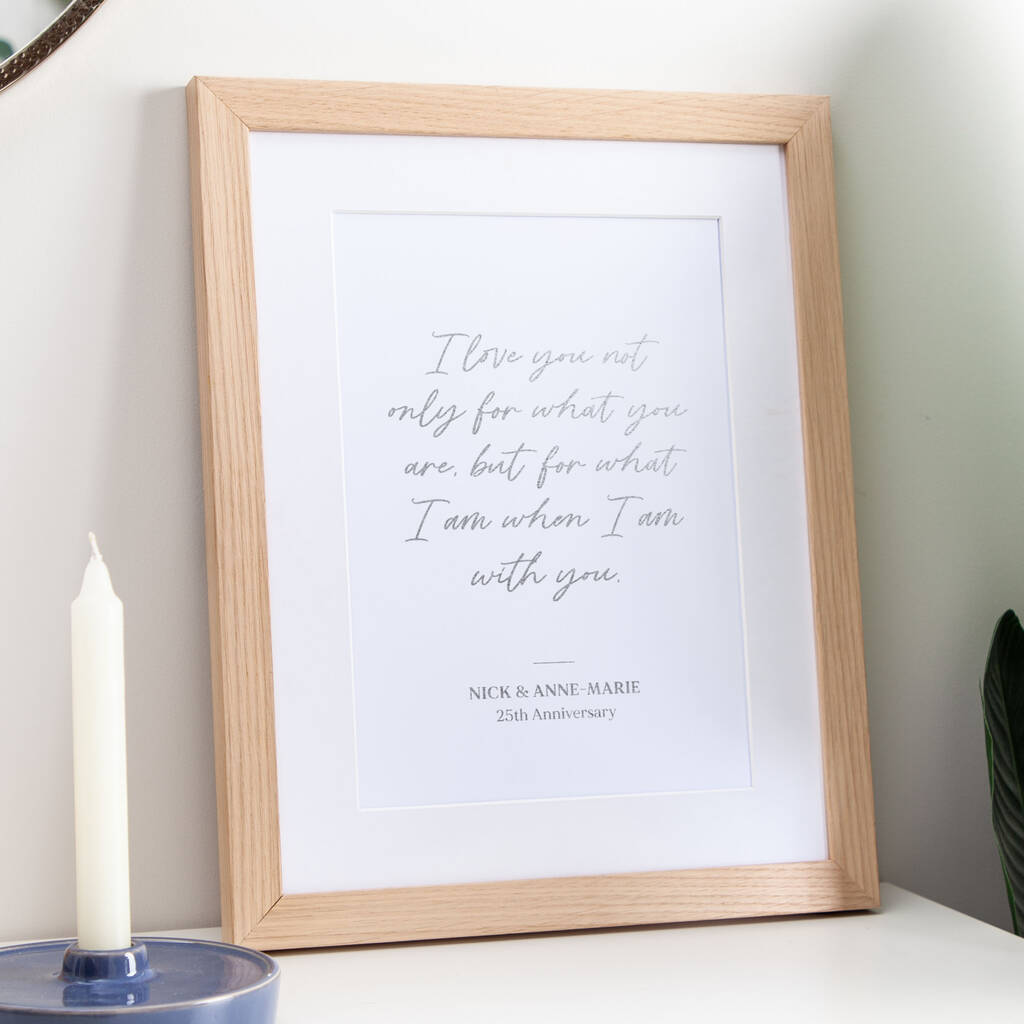 I love you not
only for what you
are, but for what
I am when I am
with you.
NICK & ANNE-MARIE
25th Anniversary